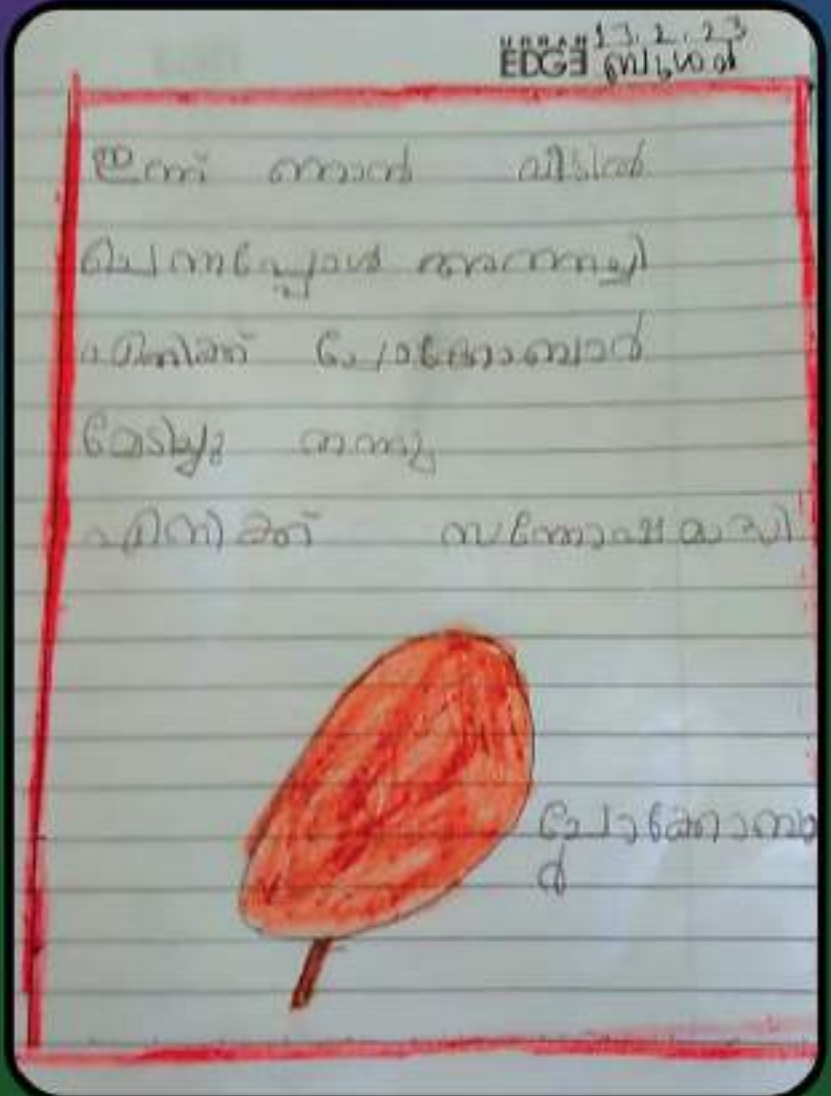 URBAN EDGE 13.2.23
ബുധൻ
ഇന്ന് ഞാൻ വീട്ടിൽ
ചെന്നപ്പോൾ അമ്മച്ചി
എനിക്ക് ചോക്കോബാർ
മേടിച്ചു തന്നു
എനിക്ക് സന്തോഷമായി
ചോക്കോബാ
ർ